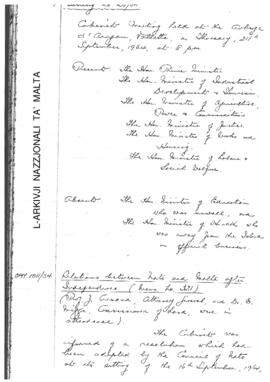 Cabinet Meeting held at the Auberge
d'Aragon, Valletta, on Thursday,
September, 1964, at 8 pm
Present The Hon. Prime Minister
The Hon. Minister of Industrial
Development & Tourism
The Hon. Minister of Agriculture,
Power & Communications
The Hon. Minister of Justice
The Hon. Minister of Works and
Housing
The Hon. Minister of Labour &
Social Welfare
Absent The Hon. Minister of Education
who was unwell, and
The Hon. Minister of Health who
was away from the Island
on official business.
L-ARKIVJI NAZZJONALI TA' MALTA
Relations between Nato and Malta after
Independence
(Prof J. Cremona, Attorney General, and Dr. E.
Mizzi, Commissioner of Land, were in
attendance).
The Cabinet was
informed of a resolution which had
been adopted by the Council of Nato
at its sitting of the 16th September, 1964,